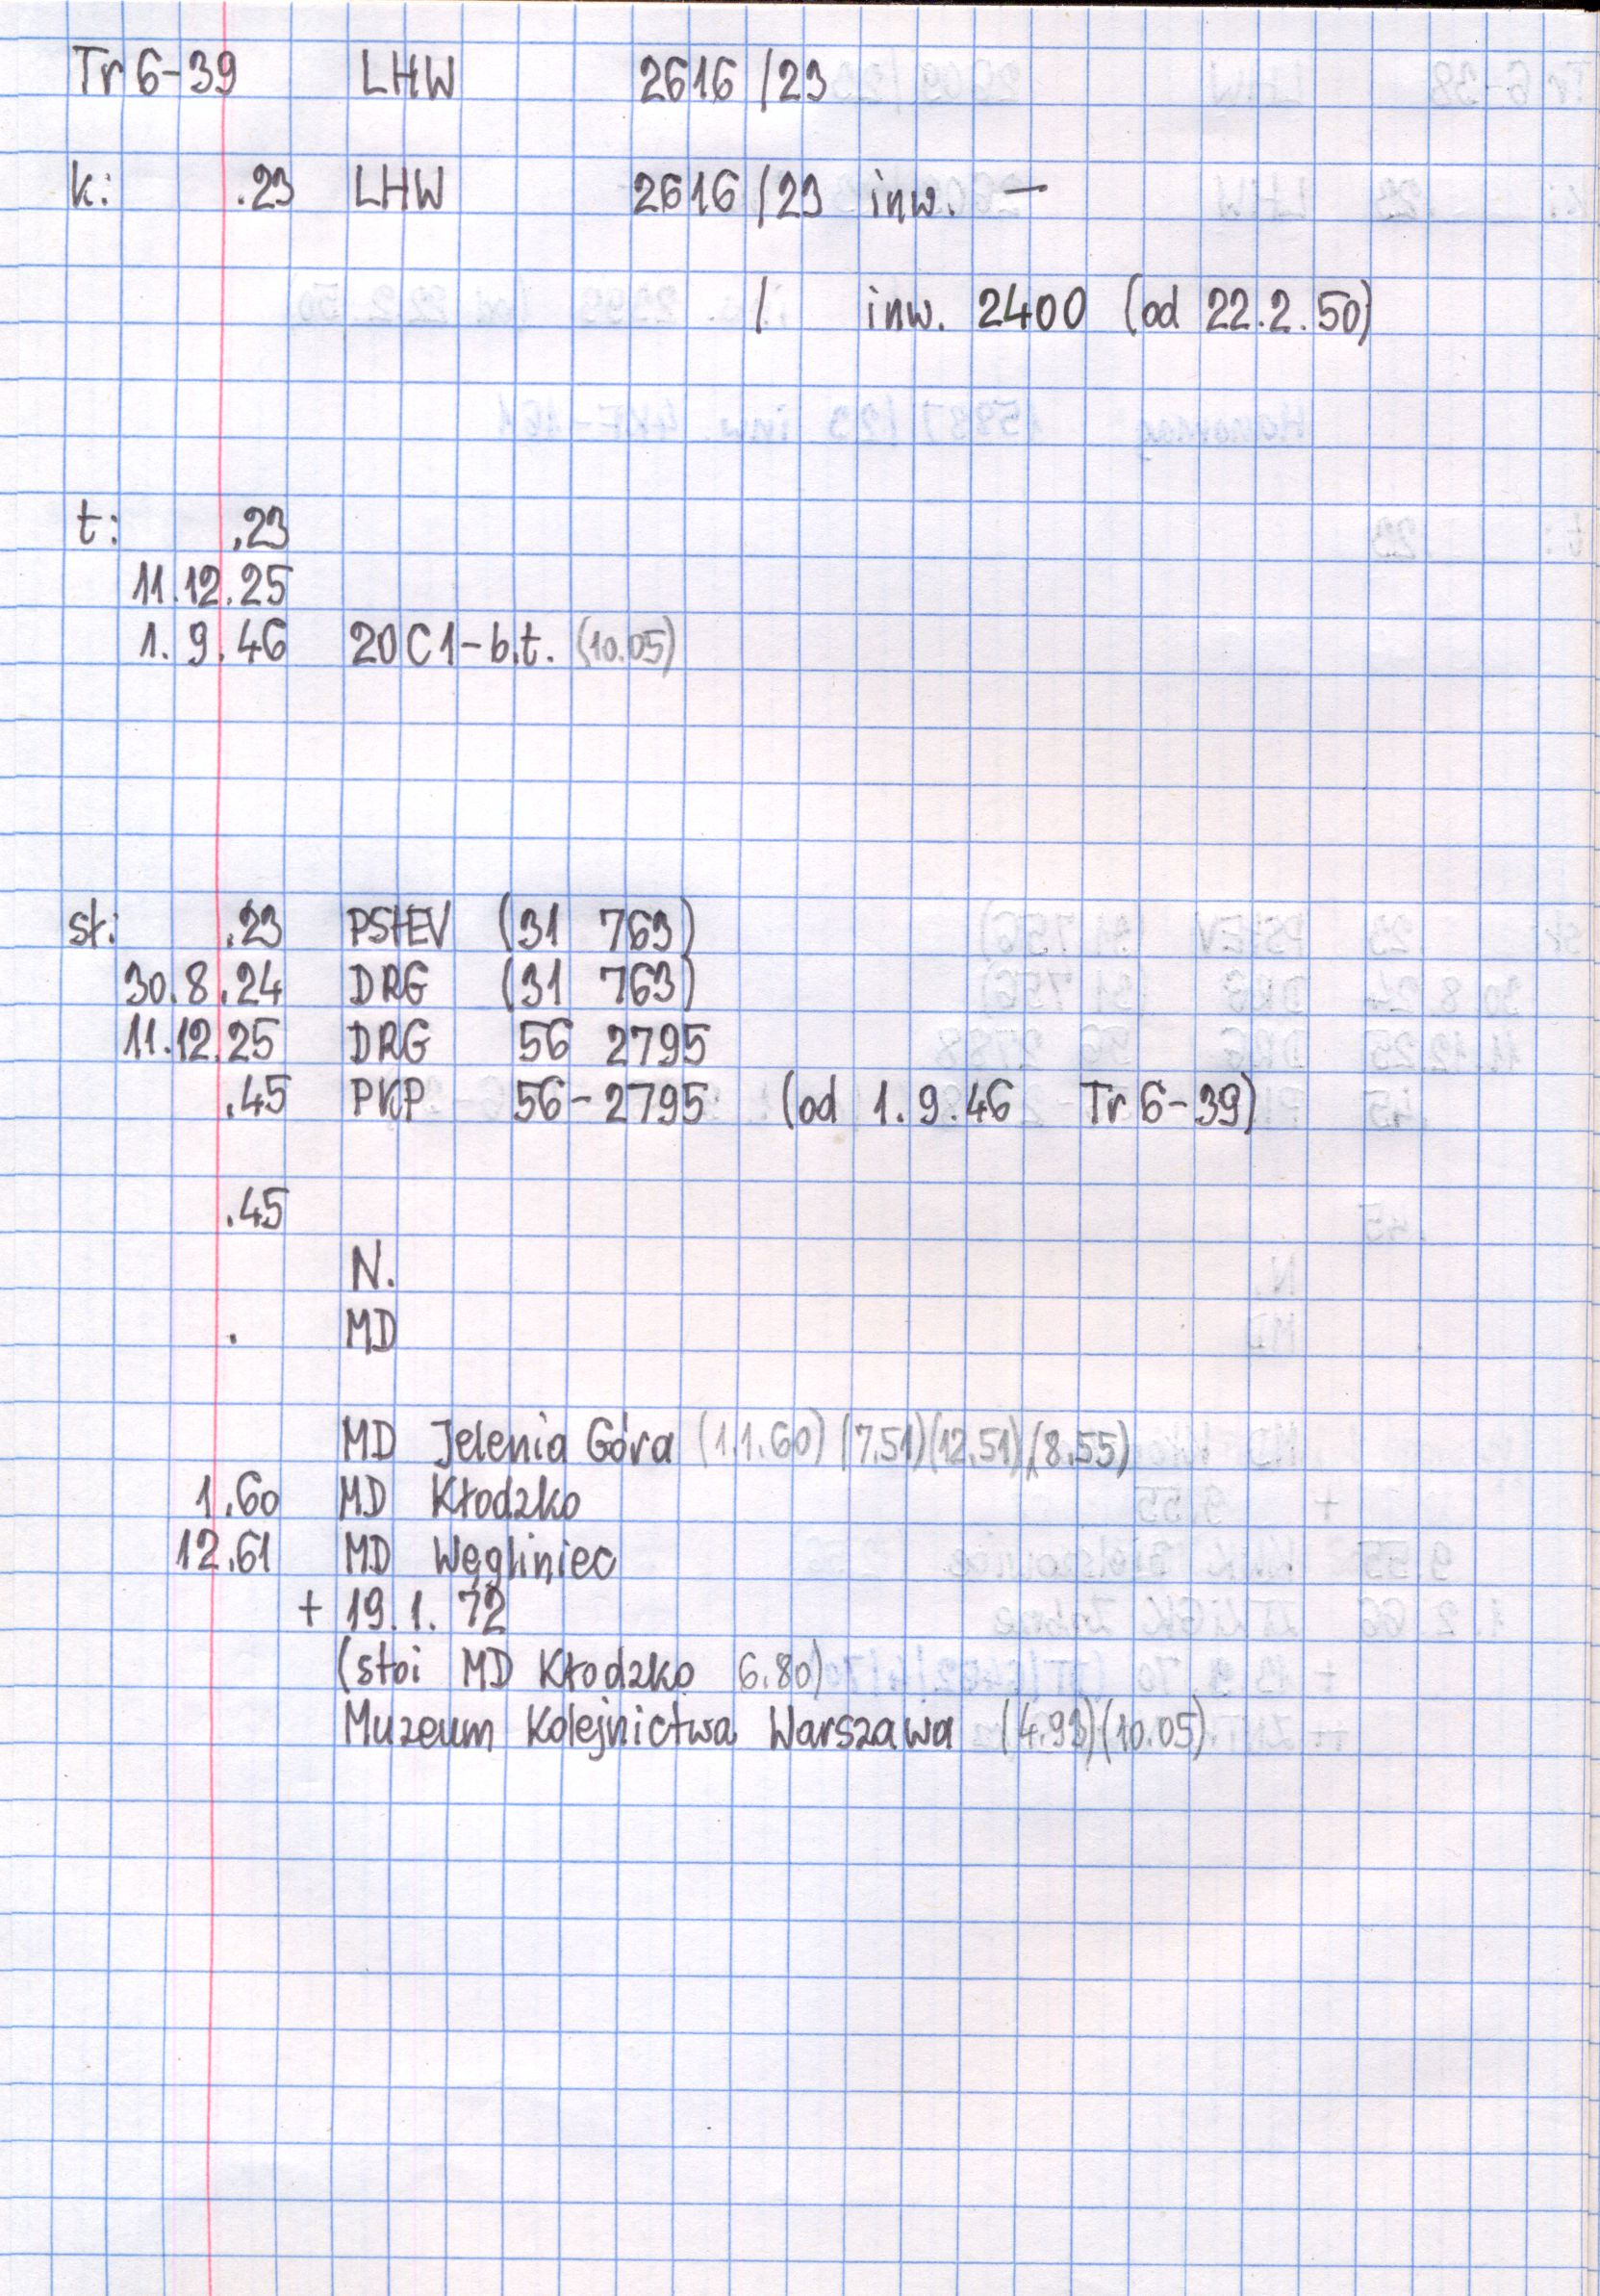 Tr 6-39 LHW 2616/23
k: .23 LHW 2616/23 inw. —
/ inw. 2400 (od 22.2.50)
t: .23
11.12.25
1.9.46 20C1-b.t. (10.05)
st: .23 PStEV (31 763)
30.8.24 DRG (31 763)
11.12.25 DRG 56 2795
.45 PKP 56-2795 (od 1.9.46 Tr 6-39)
.45
N.
. MD
MD Jelenia Góra (1.1.60) (7.51) (12.51) (8.55)
1.60 MD Kłodzko
12.61 MD Węgliniec
+ 19.1.72
(stoi MD Kłodzko 6.80)
Muzeum Kolejnictwa Warszawa (4.93) (10.05)